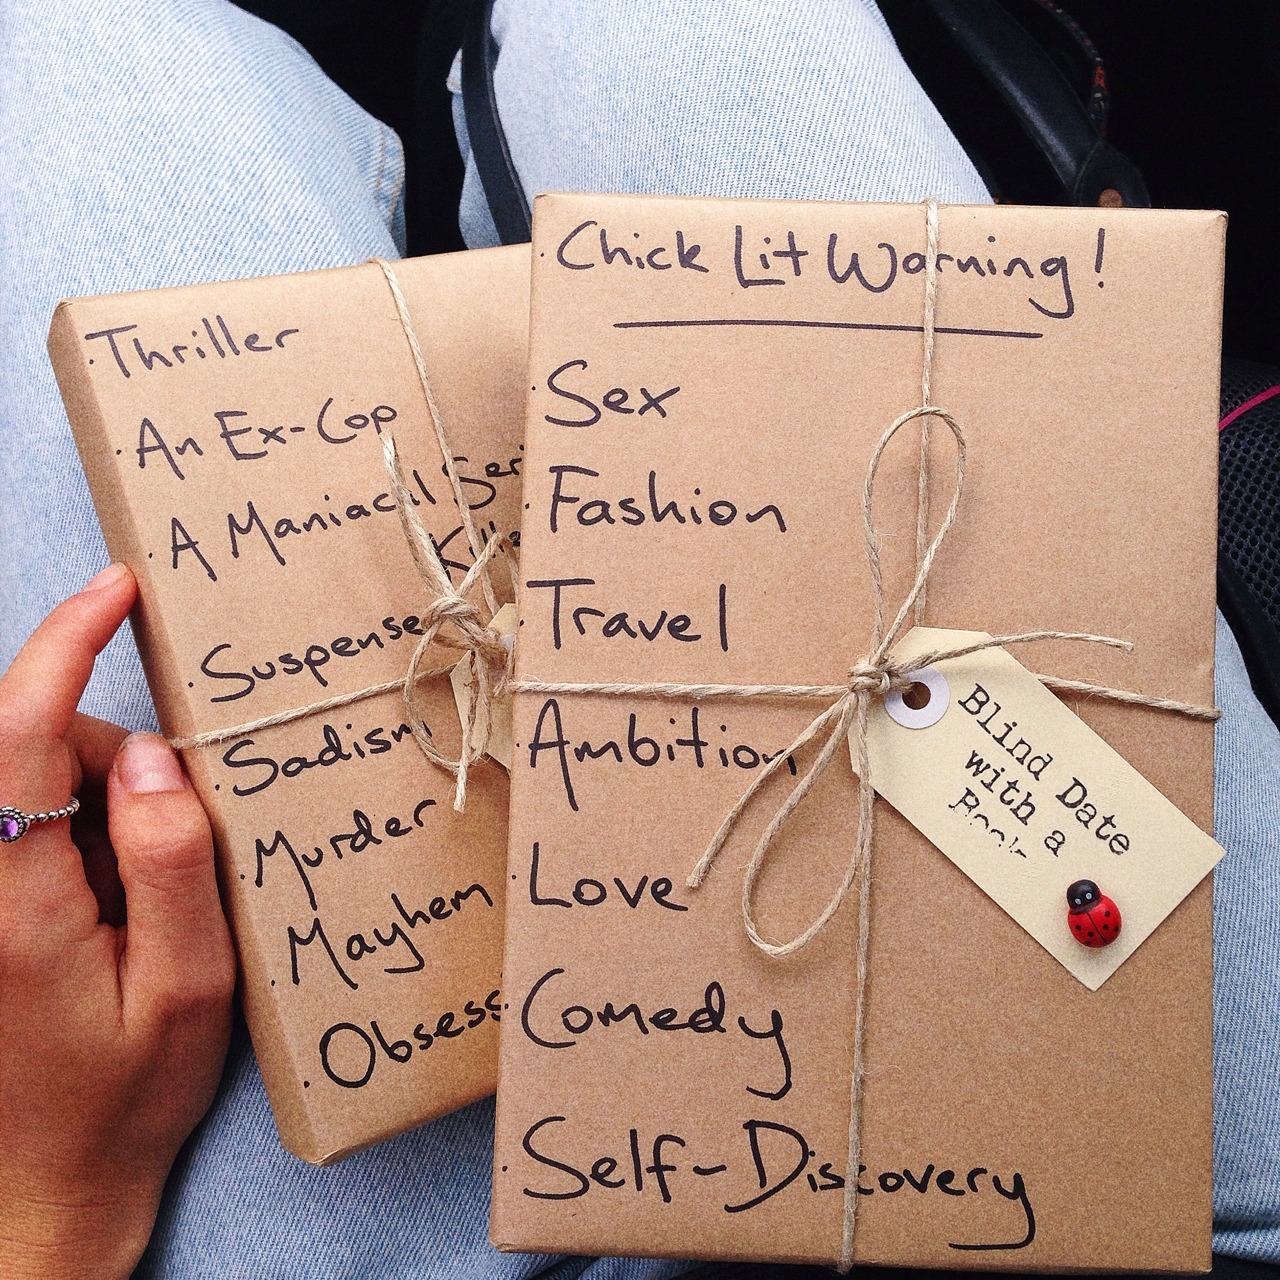 · Thriller
· An Ex-Cop
· A Maniacal Seri
Kille
· Suspense
· Sadism
· Murder
· Mayhem
· Obsess
· Chick Lit Warning!
· Sex
· Fashion
· Travel
· Ambition
· Love
· Comedy
· Self-Discovery
Blind Date
with a